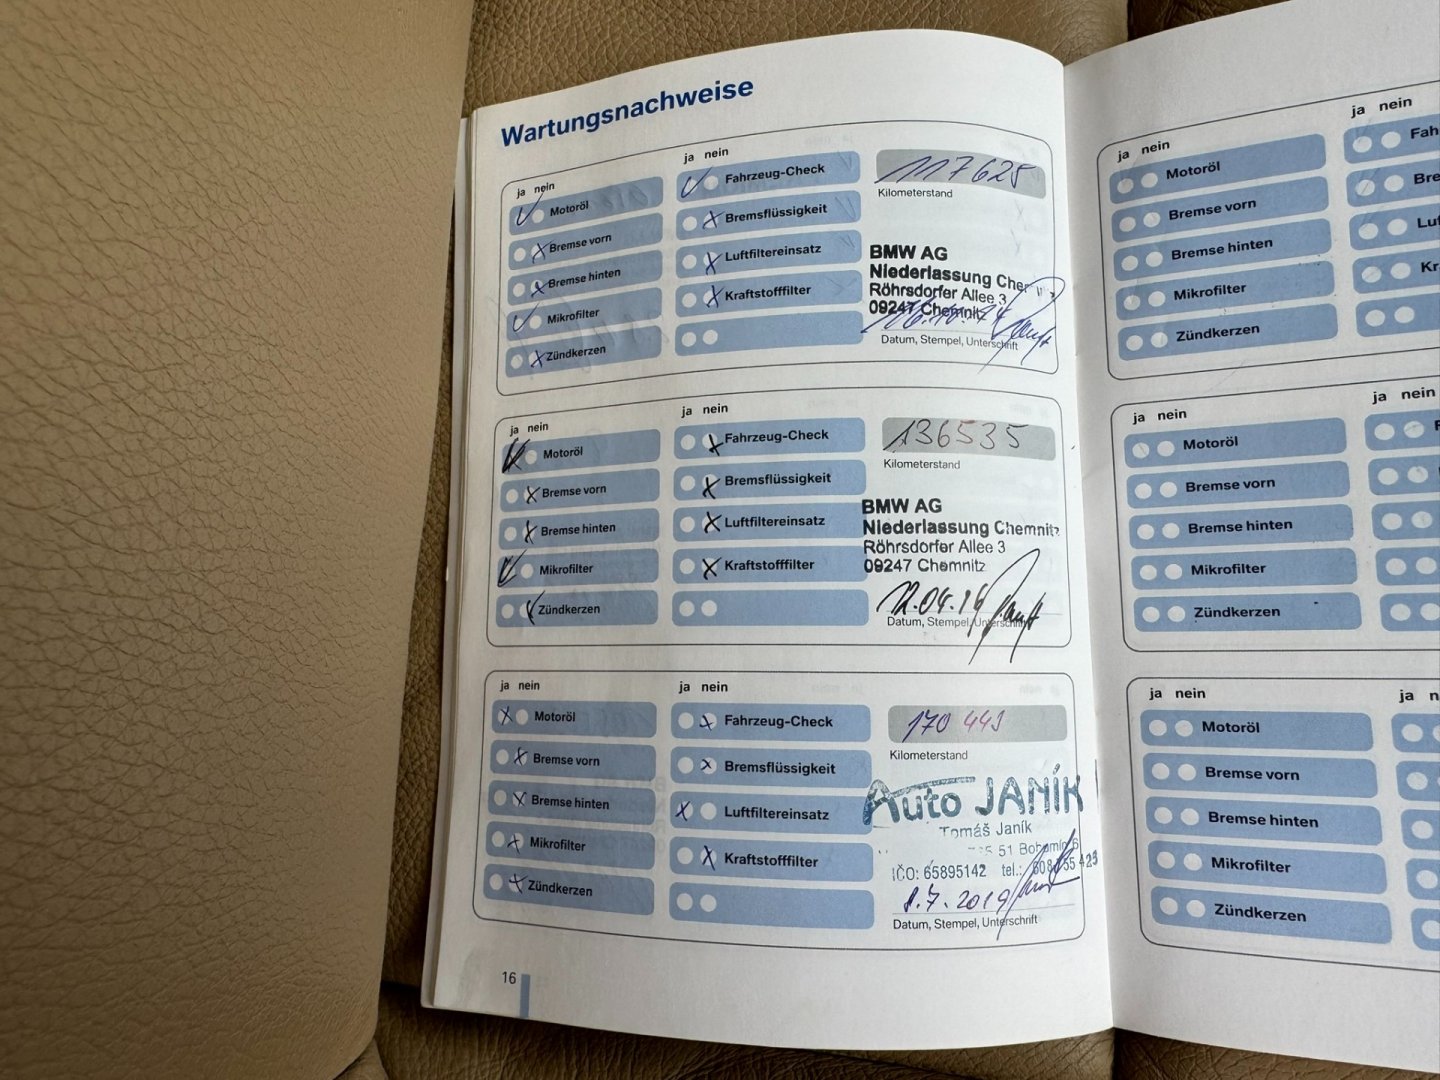 Wartungsnachweise
ja nein
Motoröl
Bremse vorn
Bremse hinten
Mikrofilter
Zündkerzen
ja nein
Fahrzeug-Check
Bremsflüssigkeit
Luftfiltereinsatz
Kraftstofffilter
117625
Kilometerstand
BMW AG
Niederlassung
Röhrsdorfer Allee 3
09247 Chemnitz
Datum, Stempel, Unterschrift
ja nein
Motoröl
Bremse vorn
Bremse hinten
Mikrofilter
Zündkerzen
ja nein
Fahrzeug-Check
Bremsflüssigkeit
Luftfiltereinsatz
Kraftstofffilter
136535
Kilometerstand
BMW AG
Niederlassung Chemnitz
Röhrsdorfer Allee 3
09247 Chemnitz
12.04.16
Datum, Stempel, Unterschrift
ja nein
Motoröl
Bremse vorn
Bremse hinten
Mikrofilter
Zündkerzen
ja nein
Fahrzeug-Check
Bremsflüssigkeit
Luftfiltereinsatz
Kraftstofffilter
170 449
Kilometerstand
Auto JANÍK
Tomáš Janík
51 Bohumín
IČO: 65895142 tel.:
1.7.2019
Datum, Stempel, Unterschrift
16
ja nein
Motoröl
Bremse vorn
Bremse hinten
Mikrofilter
Zündkerzen
ja nein
Fah
Bre
Luf
Kr
ja nein
Motoröl
Bremse vorn
Bremse hinten
Mikrofilter
Zündkerzen
ja nein
ja nein
Motoröl
Bremse vorn
Bremse hinten
Mikrofilter
Zündkerzen
ja n